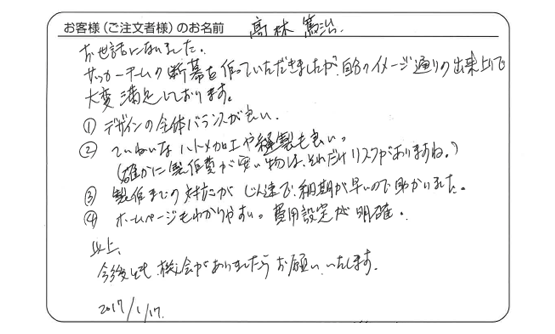 お客様（ご注文者様）のお名前 高林 篤治
お世話になりました。
サッカーチームの断幕を作っていただきましたが、自分のイメージ通りの出来上りで
大変満足しております。
① デザインの全体バランスが良い.
② ていねいなハトメ加工や縫製も良い。
（確かに製作費が安い物は、それだけリスクがありますね。）
③ 製作までの対応がじん速で、納期が早いので助かりました。
④ ホームページもわかりやすい。費用設定が明確。
以上、
今後とも機会がありましたらお願いいたします.
2017/1/17.